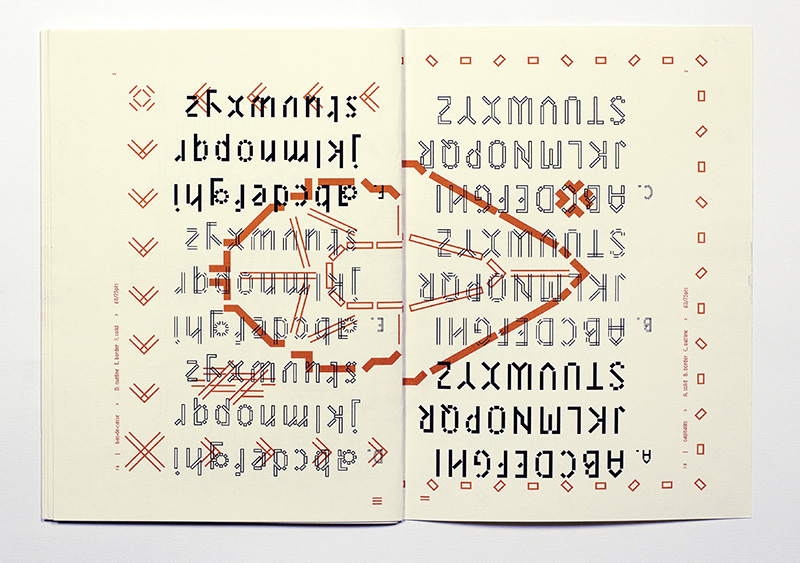 A. ABCDEFGHI
JKLMNOPQR
STUVWXYZ
B. ABCDEFGHI
JKLMNOPQR
STUVWXYZ
C. ABCDEFGHI
JKLMNOPQR
STUVWXYZ
capitales > A. solid B. border C. outline > 60/75pts
D. abcdefghi
jklmnopqr
stuvwxyz
E. abcdefghi
jklmnopqr
stuvwxyz
F. abcdefghi
jklmnopqr
stuvwxyz
bas-de-casse > D. outline E. border F. solid > 60/75pts